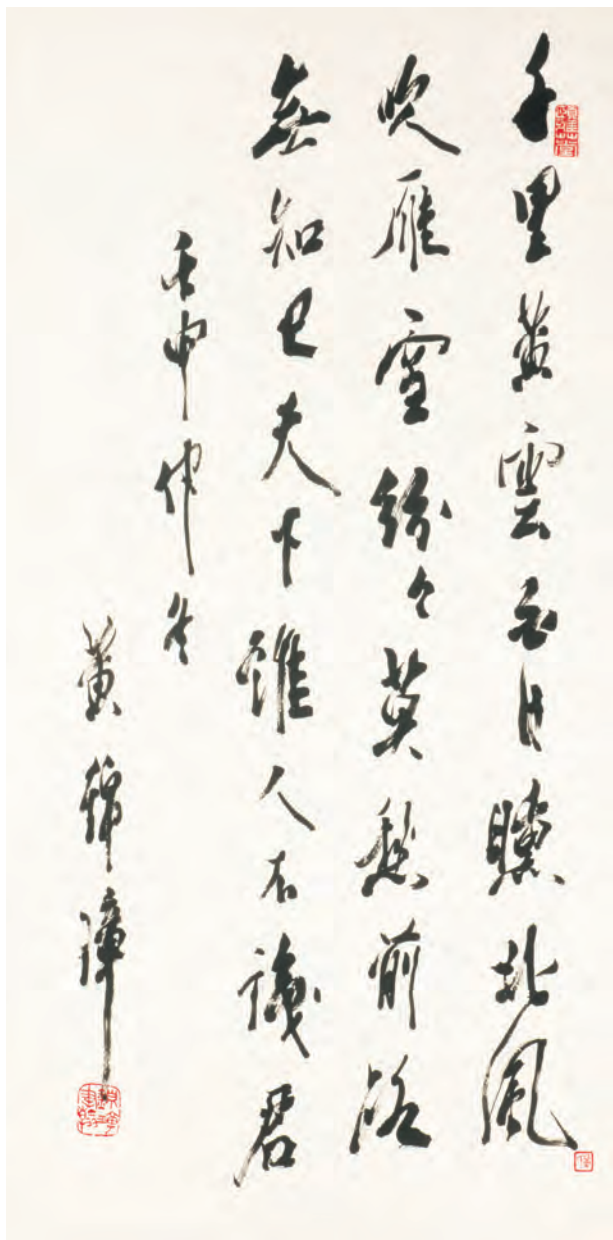 千里黄雲白日曛北風
吹雁雪紛々莫愁前路
無知己天下誰人不識君
壬申仲冬
黄